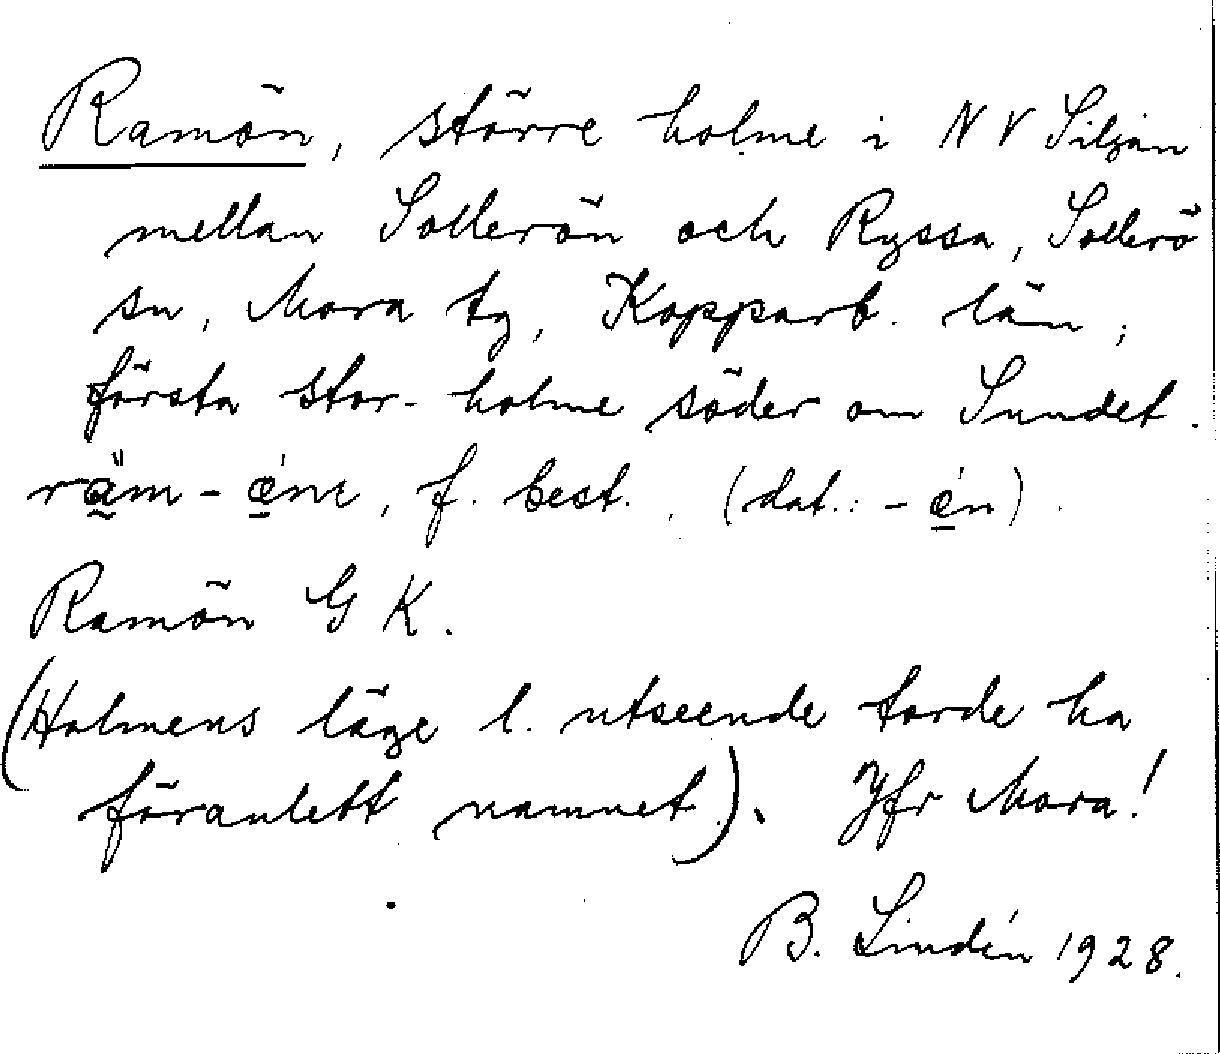 Ramön, större holme i N V Siljan
mellan Sollerön och Ryssa, Sollerö
sn, Mora tg, Kopparb. län;
första stor-holme söder om Sundet.
f. best., (dat.: -én).
Ramön G K.
(Holmens läge l. utseende torde ha
föranlett namnet). Jfr Mora!
B. Lindén 1928.